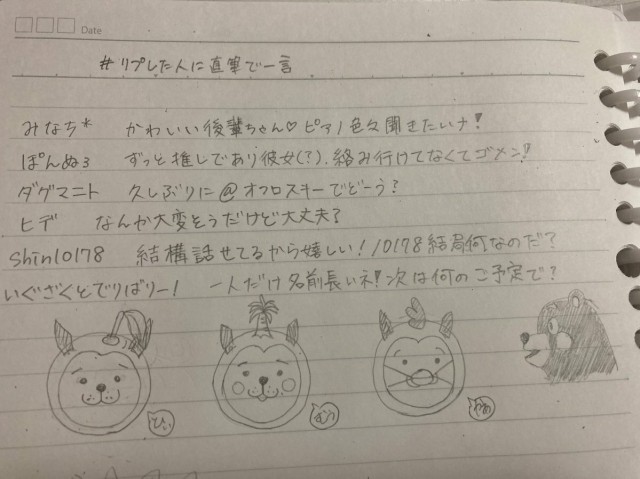 Date
#リプした人に直筆で一言
みなち* かわいい後輩ちゃん♡ピアノ色々聞きたいナ!
ぽんぬぅ ずっと推しであり彼女(?)、絡み行けてなくてゴメン!!
ダグマニト 久しぶりに@オフロスキーでどーう?
ヒデ なんか大変そうだけど大丈夫?
shin10178 結構話せてるから嬉しい!10178結局何なのだ?
いぐざくとでりばりー! 一人だけ名前長いネ!次は何のご予定で?
ひぃ
むぅ